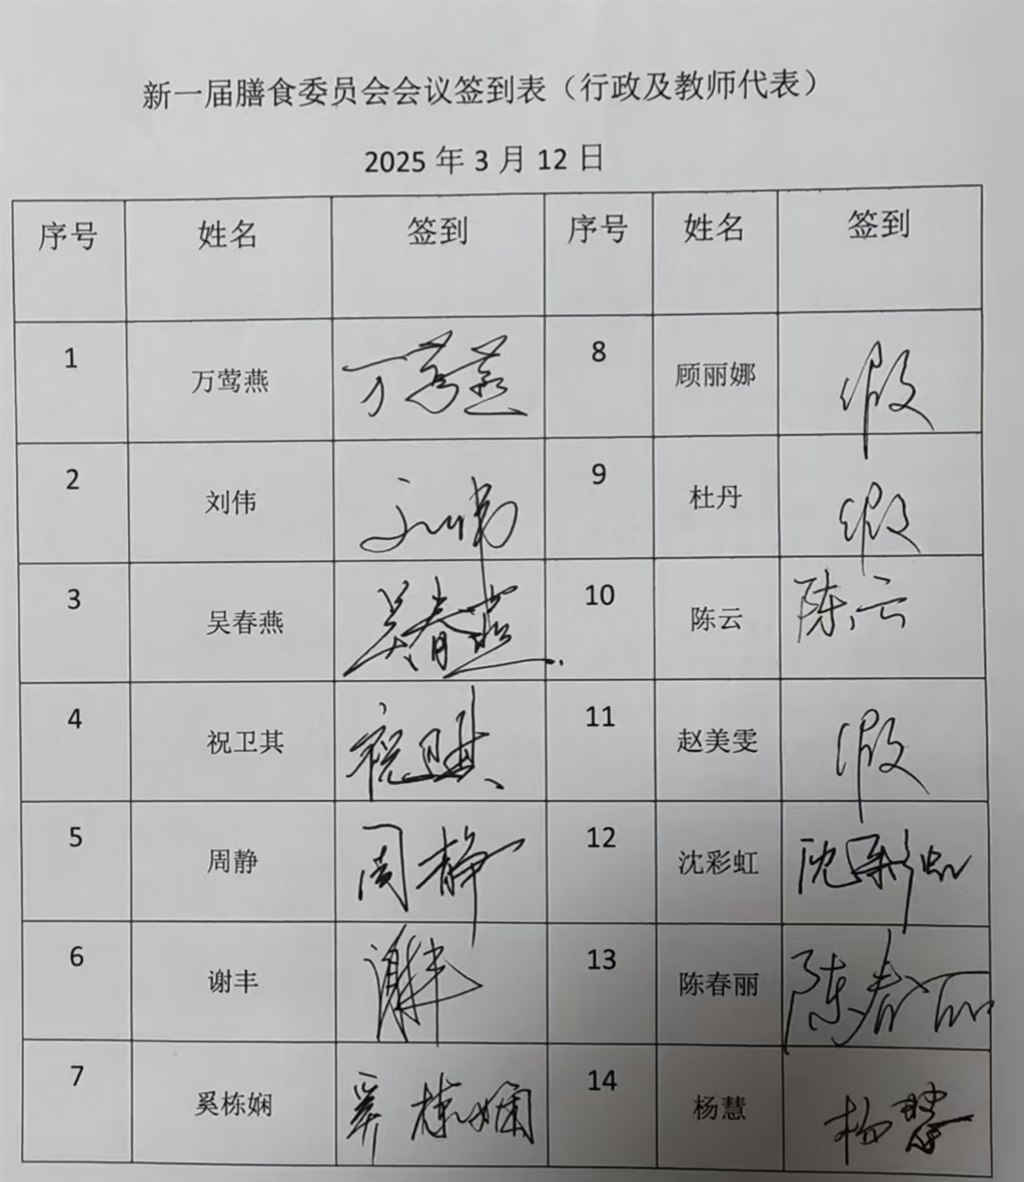 新一届膳食委员会会议签到表（行政及教师代表）
2025 年 3 月 12 日
序号 姓名 签到 序号 姓名 签到
1 万莺燕 万莺燕 8 顾丽娜 假
2 刘伟 刘伟 9 杜丹 假
3 吴春燕 吴春燕 10 陈云 陈云
4 祝卫其 祝卫其 11 赵美雯 假
5 周静 周静 12 沈彩虹 沈彩虹
6 谢丰 谢丰 13 陈春丽 陈春丽
7 奚栋娴 奚栋娴 14 杨慧 杨慧